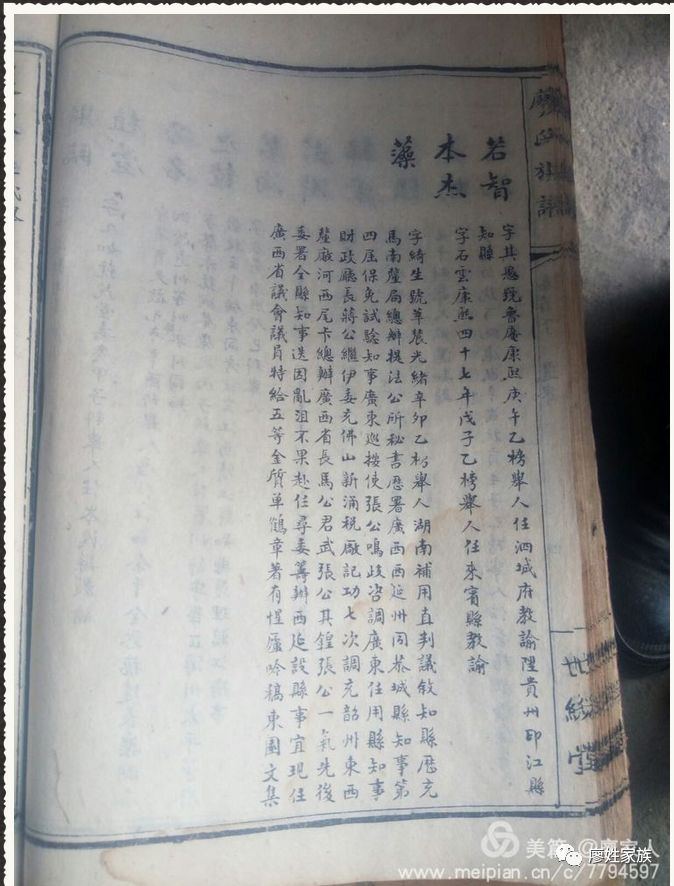 廖氏族譜
若智
字其愚號魯庵康熙庚午乙榜舉人任泗城府教諭陞貴州印江縣
知縣
本杰
字石雲康熙四十七年戊子乙榜舉人任來賓縣教諭
藻
字綺生號華農光緒辛卯乙榜舉人湖南補用直判議敘知縣歷充
馬南釐局總辦提法公所秘書歷署廣西西延州同恭城縣知事第
四屆保免試驗知事廣東巡按使張公鳴歧咨調廣東任用縣知事
財政廳長蔣公繼伊委充佛山新涌稅廠記功七次調充韶州東西
釐廠河西尾卡總辦廣西省長馬公君武張公其鍠張公一氣先後
委署全縣知事迭因亂沮不果赴任尋委籌辦西延設縣事宜現任
廣西省議會議員特給五等金質單鶴章著有惺廬吟稿東園文集
世綵堂
美篇 @廖家人
廖姓家族
www.meipian.cn/c/7794597